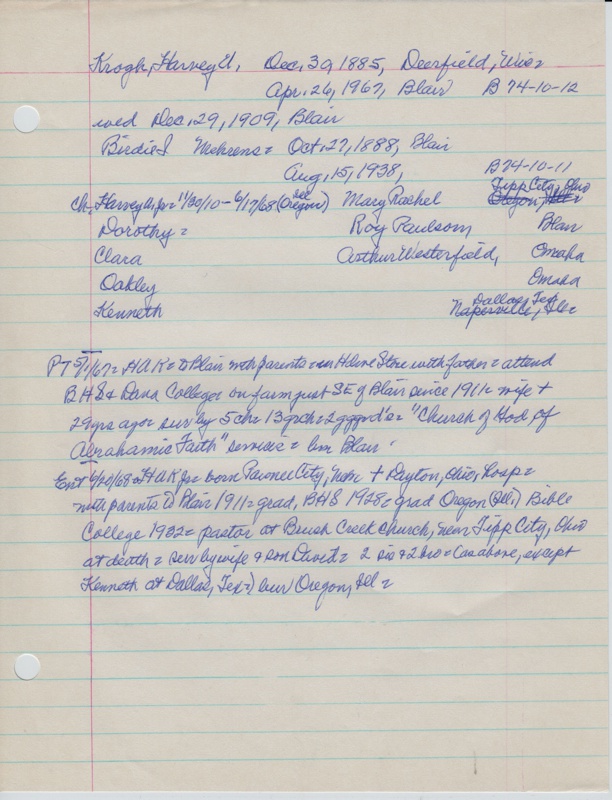 Krogh, Harvey U, Dec, 30, 1885, Deerfield, Wis=
Apr. 26, 1967, Blair B 74-10-12
wed Dec, 29, 1909, Blair
Birdie S Mehrens= Oct, 27, 1888, Blair
Aug, 15, 1938, B74-10-11
Ch, Harvey Jr= 11/30/10 - 6/17/68 (see Oregon) Mary Rachel Tipp City, Ohio Oregon, Ill=
Dorothy= Roy Paulson Blair
Clara Arthur Westerfield, Omaha
Oakley Omaha
Kenneth Dallas, Tex Naperville, Ill=
PT 5/1/67= HUK= to Blair with parents= in Hdwe Store with father= attend
BHS & Dana College= on farm just SE of Blair since 1911= wife +
29 yrs ago= surv by 5 ch= 13 grch= 2 "Church of God, of
Abrahamic Faith" service= bur Blair
Ent 6/20/68= HUK Jr= born Pawnee City, Neb= + Dayton, Ohio, hosp=
with parents to Blair 1911= grad, BHS 1928= grad Oregon (Ill.) Bible
College 1932= pastor at Brush Creek Church, near Tipp City, Ohio
at death= surv by wife & son David= 2 sis & 2 bro= (as above, except
Kenneth at Dallas, Tex=) bur Oregon, Ill=